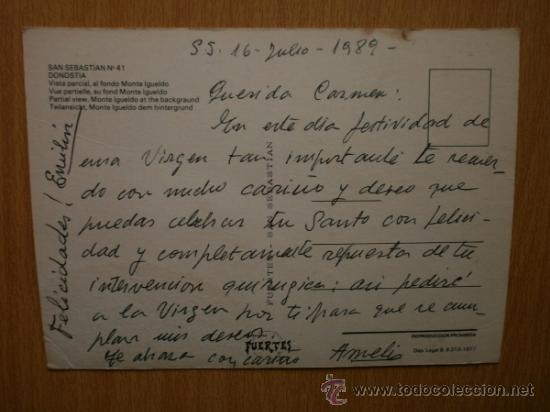 SS. 16 - Julio - 1989 -
SAN SEBASTIAN Nº 41
DONOSTIA
Vista parcial, al fondo Monte Igueldo
Vue partielle, su fond Monte Igueldo
Partial view, Monte Igueldo at the background
Teilansicht, Monte Igueldo dem hintergrund
Querida Carmen:
En este día festividad de
una Virgen tan importante te recuer-
do con mucho cariño y deseo que
puedas celebrar tu Santo con felici-
dad y completamente repuesta de tu
intervencion quirugica: asi pediré
a la Virgen por ti para que se cum-
plan mis deseos.
Te abraza con cariño
Amelia
Felicidades! Emilin
FUERTES - SAN SEBASTIÁN
FUERTES
REPRODUCCION PROHIBIDA
Dep. Legal B. 9.213-1977
todocoleccion.net